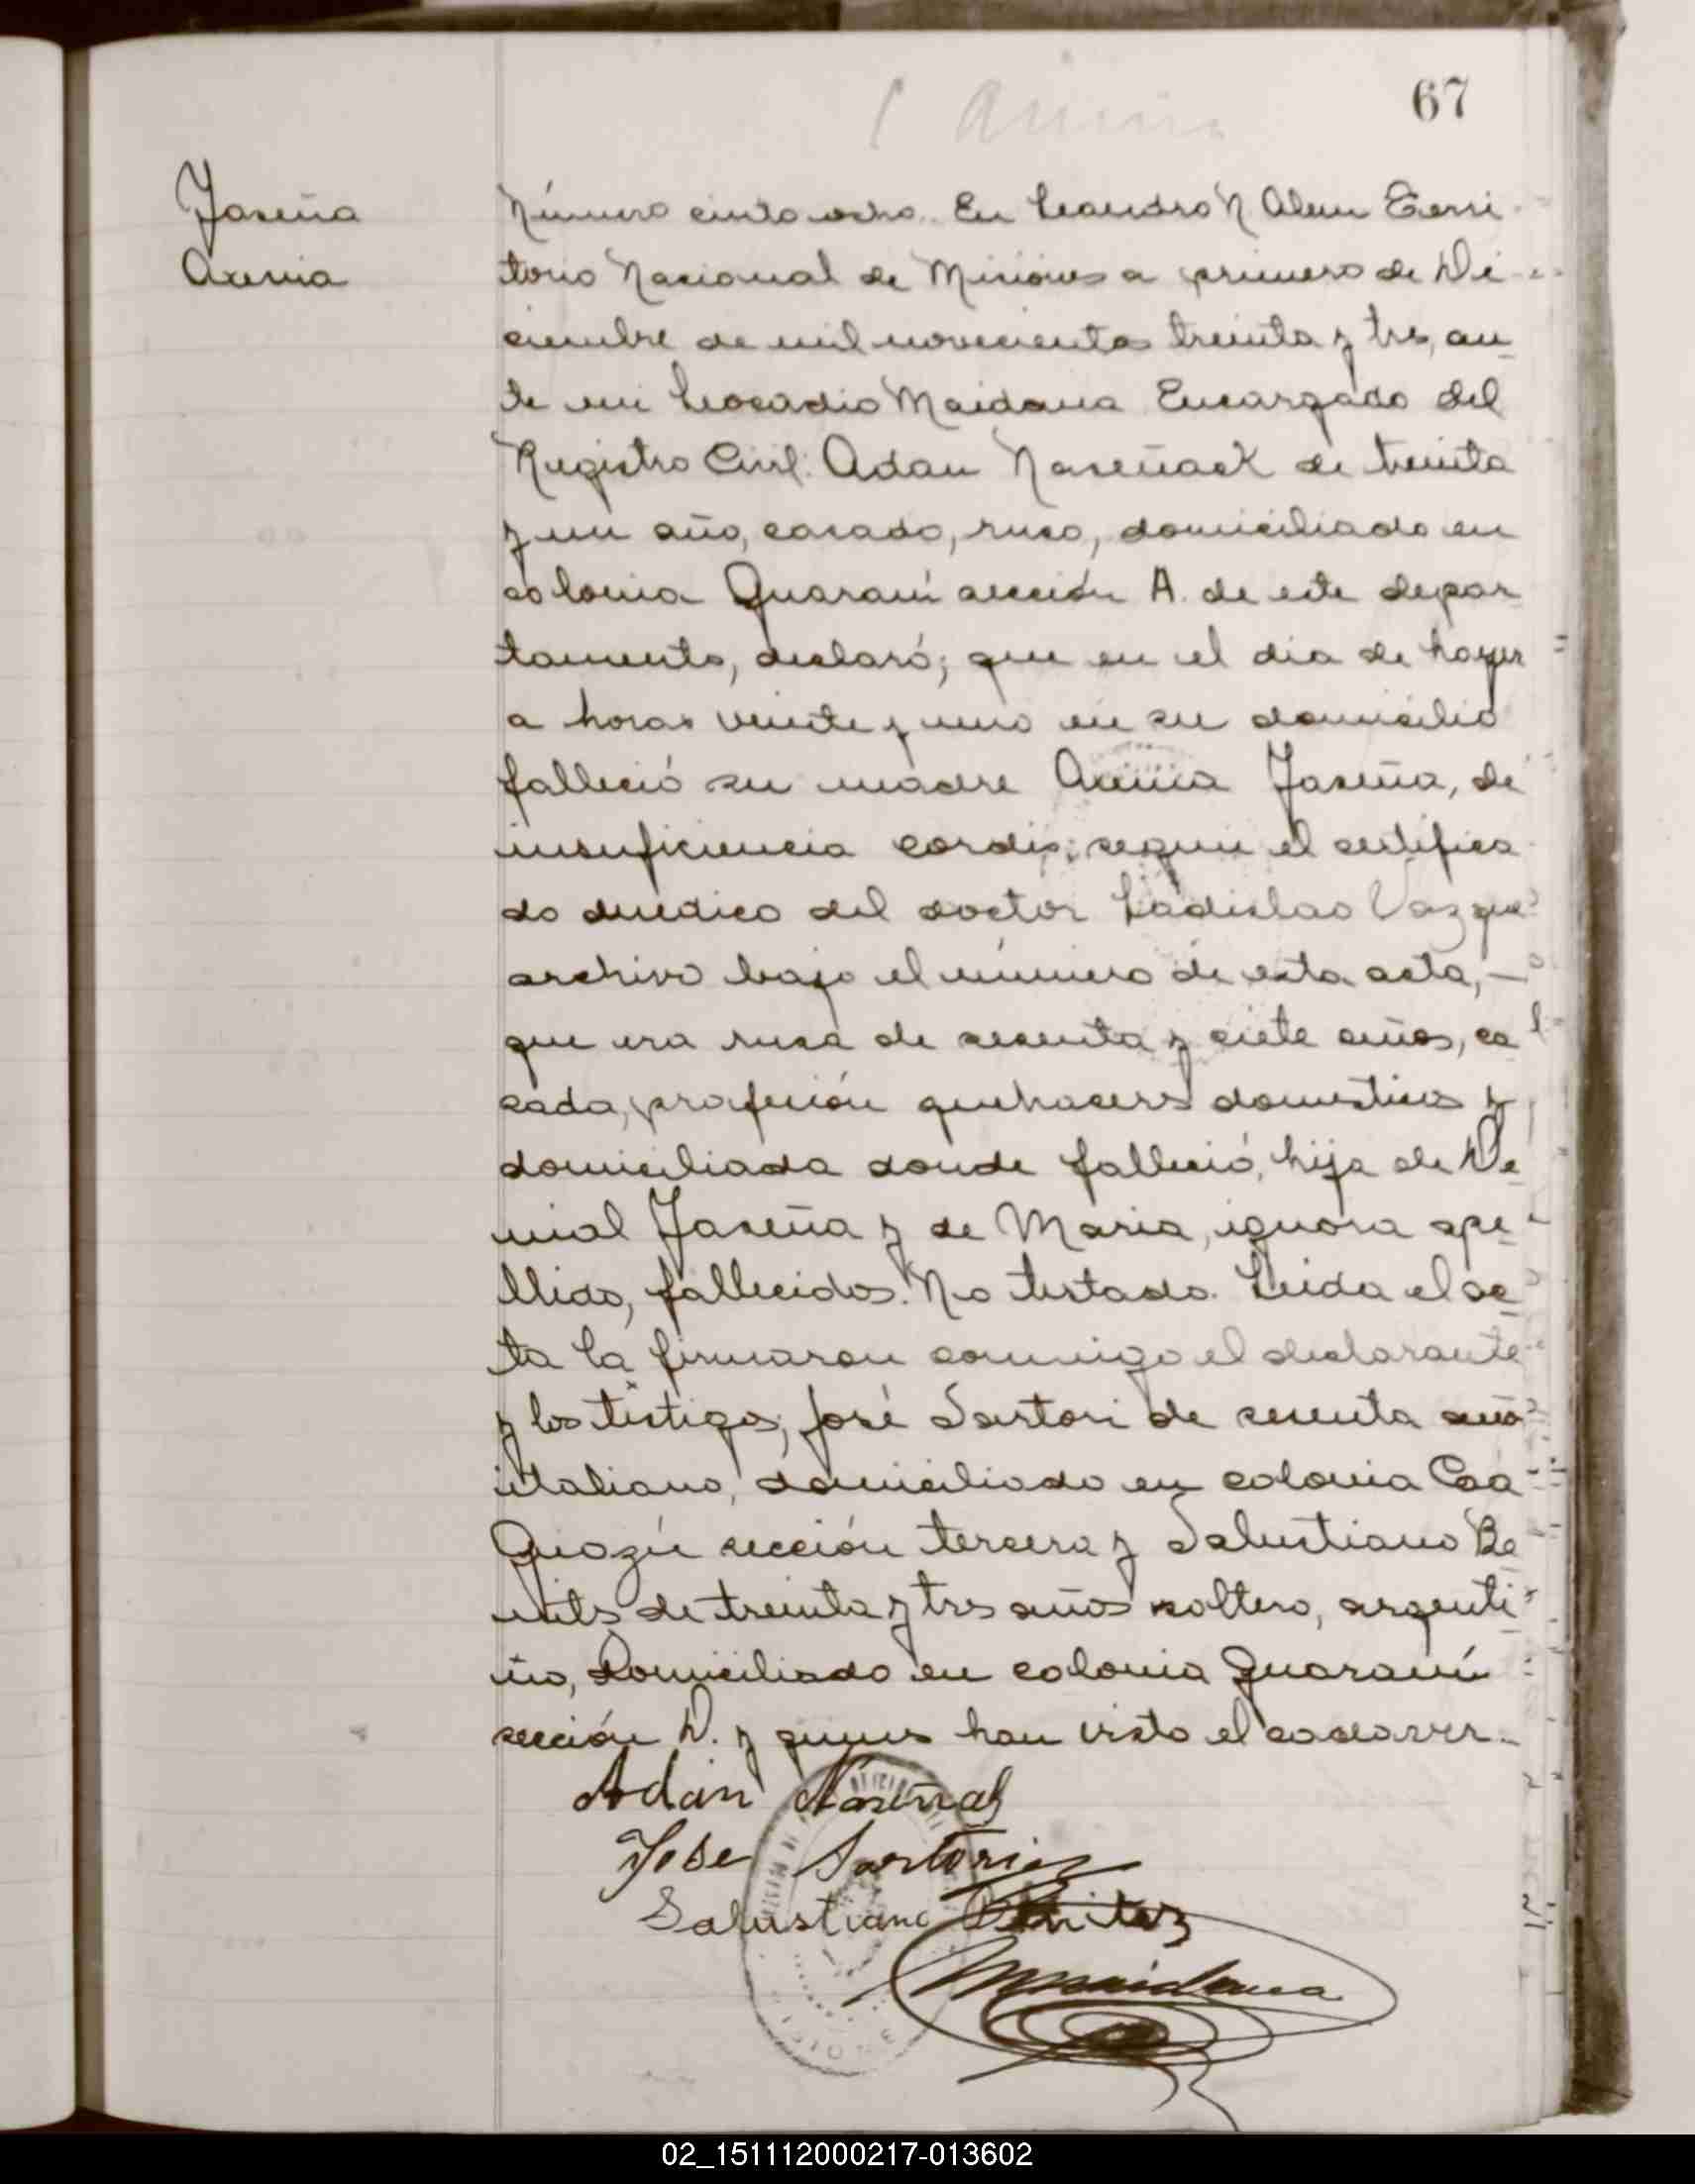 67
Jaseña
Axenia
Número ciento ocho. En Leandro N Alem Terri
torio Nacional de Misiones a primero de Di
ciembre de mil novecientos treinta y tres, an
te mi Leocadio Maidana Encargado del
Registro Civil: Adan Naseñack de treinta
y un año, casado, ruso, domiciliado en
colonia Guaraní sección A. de este depar
tamento, declaró; que en el dia de hayer
a horas veinte y uno en su domicilio
falleció su madre Axenia Jaseña, de
insuficiencia cordis; segun el certifica
do medico del doctor Ladislao Vaz que
archivo bajo el número de esta acta, —
que era rusa de sesenta y siete años, ca
sada, profesión quehaceres domesticos y
domiciliada donde falleció, hija de De
nial Jaseña y de Maria, ignora ape
llido, fallecidos. No testado. Leida el ac
ta la firmaron conmigo el declarante
y los testigos; José Sartori de sesenta año
italiano, domiciliado en colonia Caa
Guazú sección tercera y Salustiano Be
nits de treinta y tres años soltero, argenti
no, Domiciliado en colonia Guaraní
sección D. y quenes han visto el cadaver.
Adán
Jose Sartori
Salustiano Benitez
Maidana
02_151112000217-013602